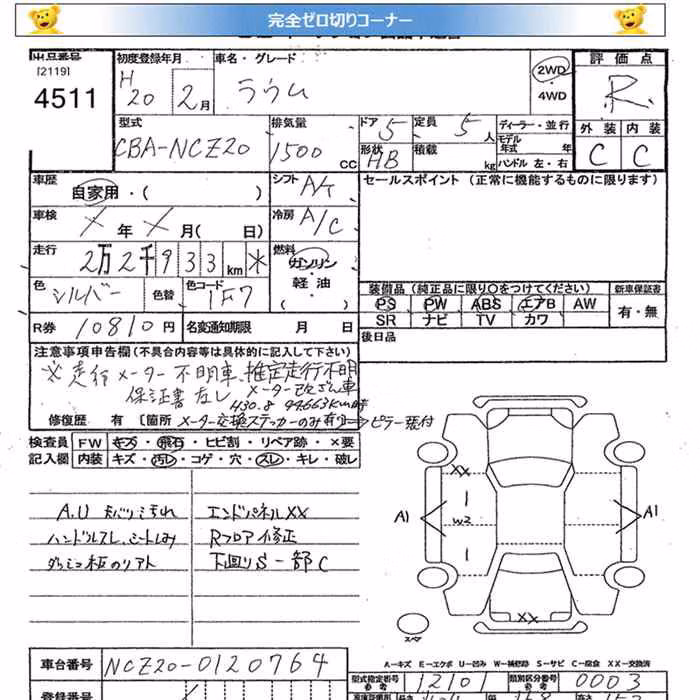 完全ゼロ切りコーナー
出品番号 初度登録年月 車名・グレード 評価点
[2119] H 20 2月 ラウム 2WD R
4511 ・4WD
型式 排気量 ドア 5 定員 5人 ディーラー・並行 外装 内装
CBA-NCZ20 1500 CC 形状 HB 積載 kg モデル年式 年 C C
ハンドル 左・右
車歴 自家用・( ) シフト A/t セールスポイント(正常に機能するものに限ります)
車検 × 年 × 月( 日) 冷房 A/C
走行 2万2千933km * 燃料 ガソリン・軽油・( )
装備品(純正品に限り〇をつけてください) 新車保証書
色 シルバー 色替 色コード 1F7 PS PW ABS エアB AW 有・無
SR ナビ TV カワ
R券 10810円 名変通知期限 月 日 後日品
注意事項申告欄(不具合内容等は具体的に記入して下さい)
※走行メーター不明車、推定走行不明
保証書なし メーター改ざん車
H30.8 94663km時
修復歴 有 [箇所 メーター交換ステッカーのみ有り ピラー張付
検査員 FW キズ・飛石・ヒビ割・リペア跡・×要
記入欄 内装 キズ・汚レ・コゲ・穴・スレ・キレ・破レ
A.U エンドパネルXX
ハンドルスレ、シートしみ Rフロア修正
下回りS 一部C
XX
W2
A1 A1
XX
スペア
A-キズ E-エクボ U-凹み W-補修跡 S-サビ C-腐食 XX-交換済
車台番号 NCZ20-0120764 型式指定番号 参考 12101 類別区分番号 参考 0003
登録番号